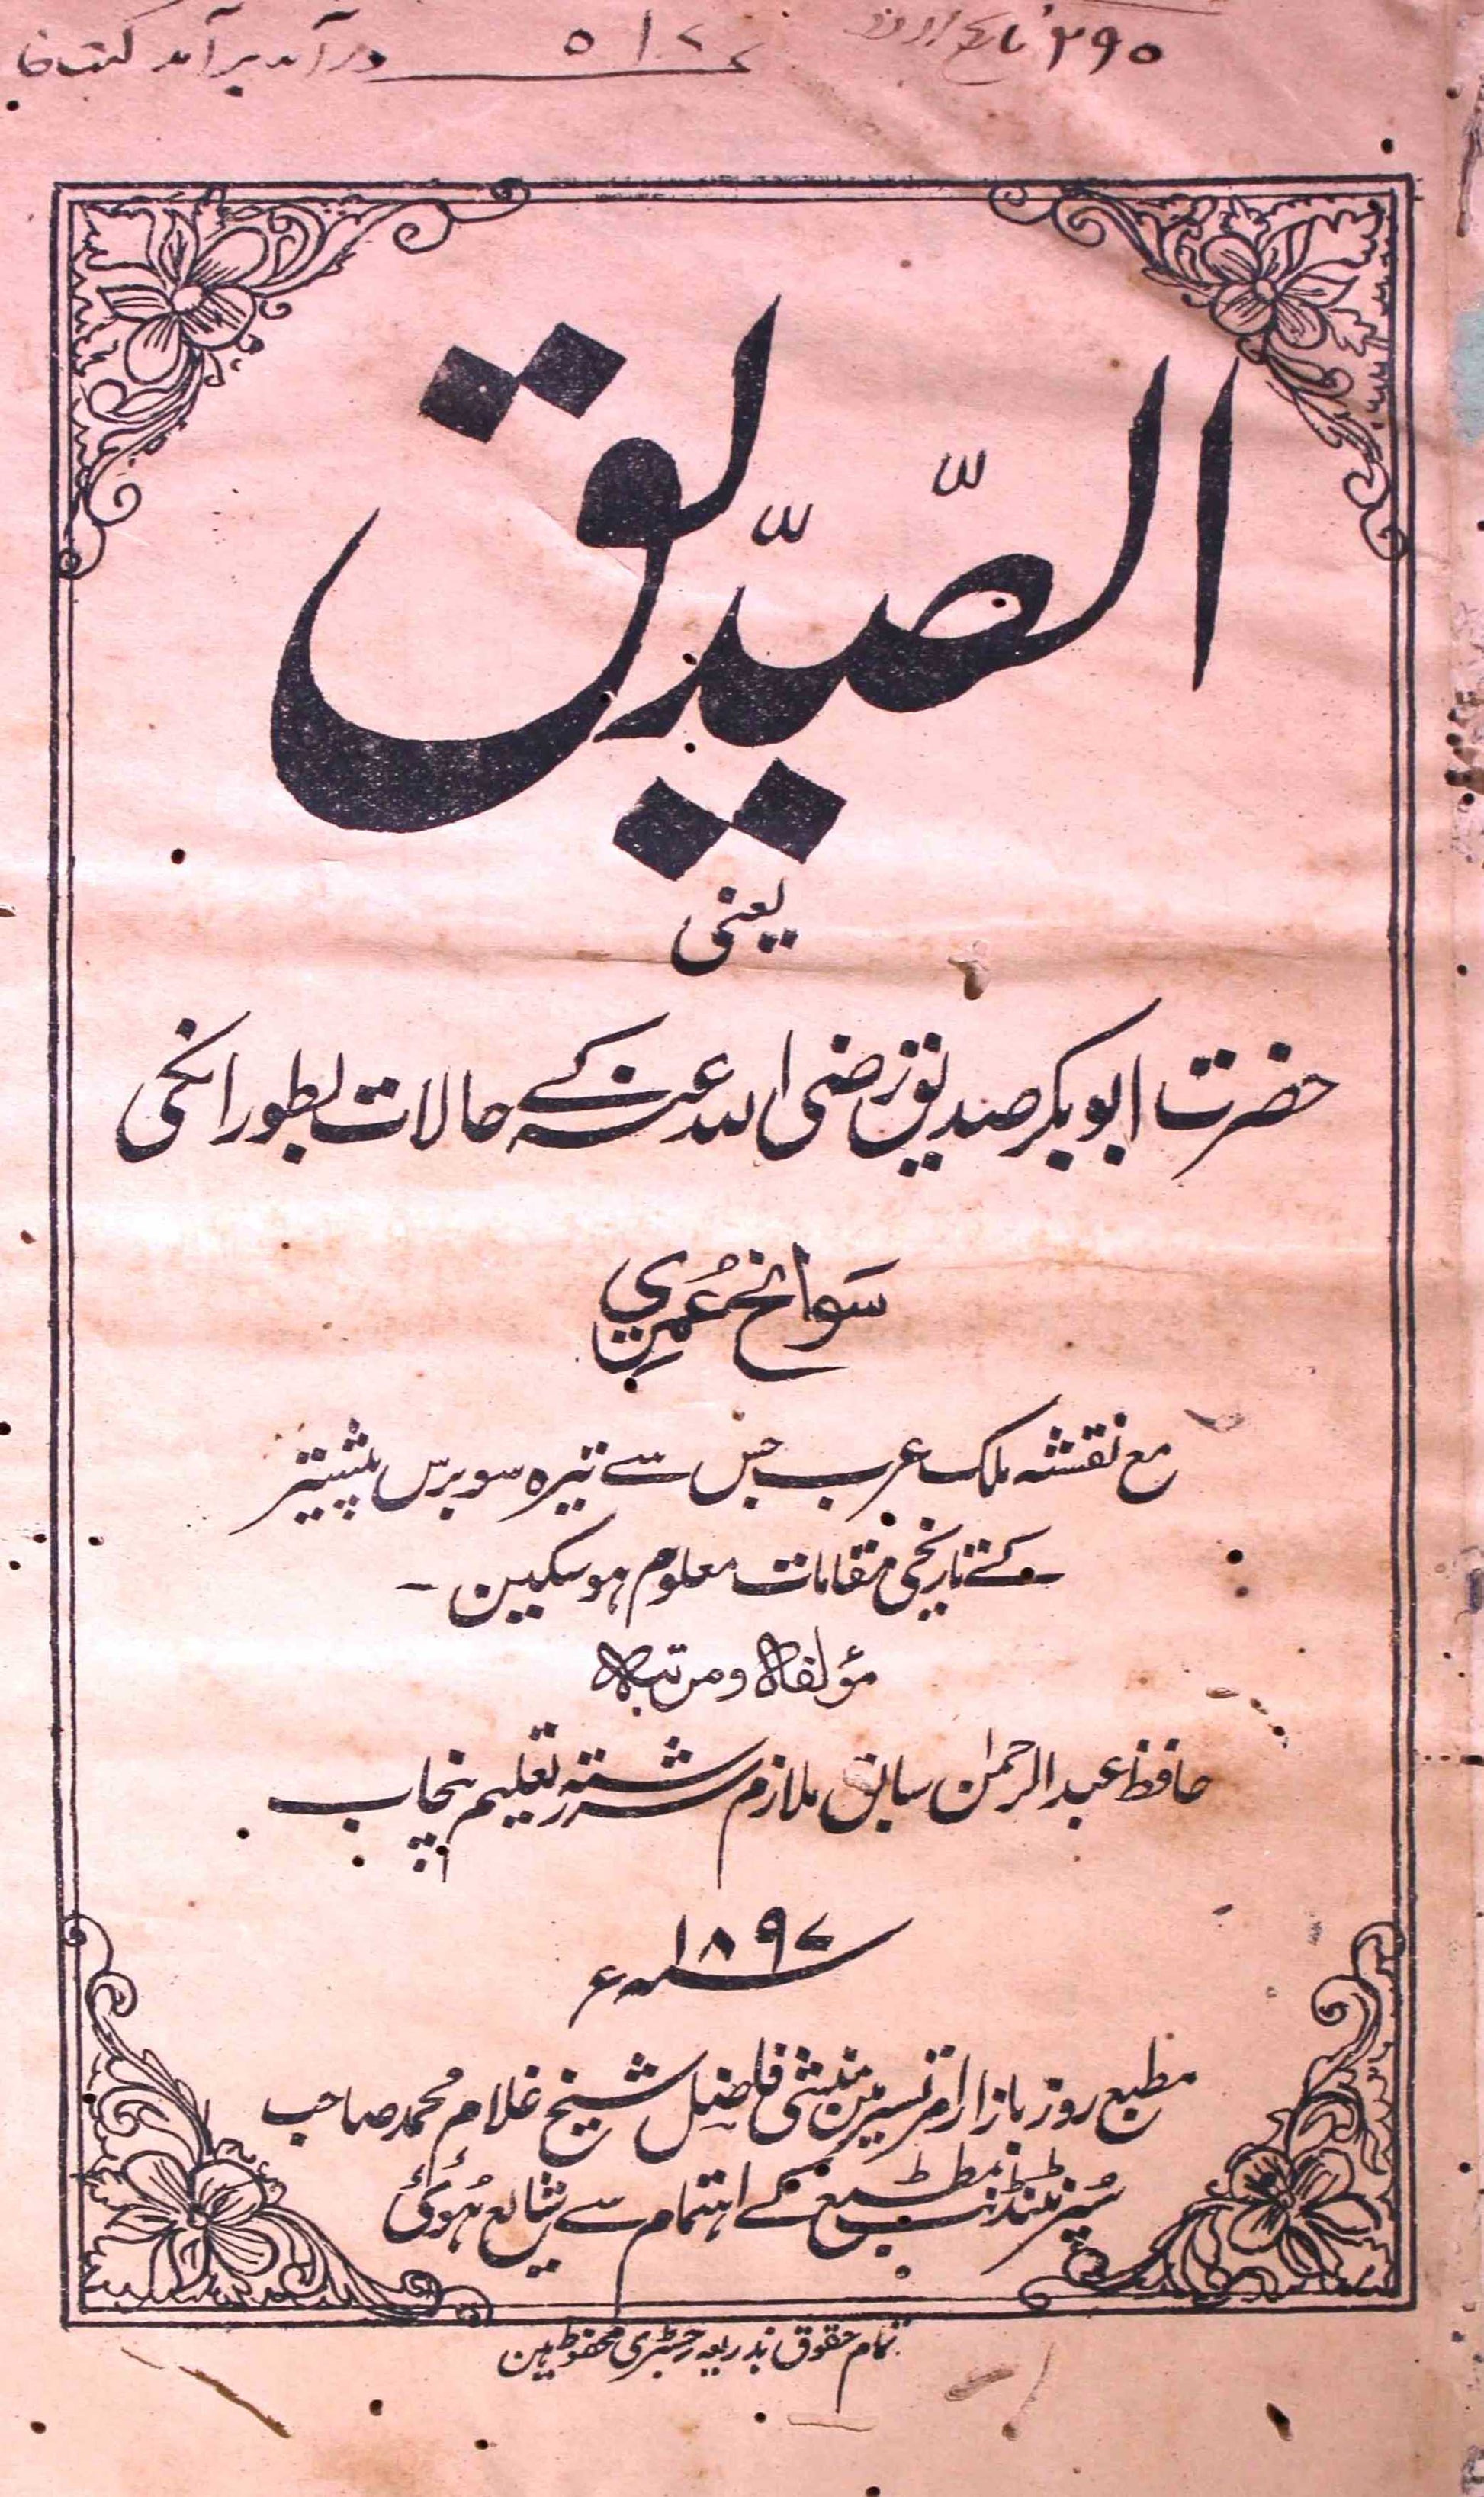 ۲۹۵ تاریخ اردو
۵۱۷۷ درآمد برآمد کتب خا
الصّدّیق
یعنی
حضرت ابوبکر صدیق رضی اللہ عنہ کے حالات بطور انکی
سَوانح عُمرِی
مع نقشہ ملک عرب جس سے تیرہ سو برس پیشتر
کے تاریخی مقامات معلوم ہو سکین ۔
مؤلفہ و مرتبہ
حافظ عبد الرحمٰن سابق ملازم سررشتہ تعلیم پنجاب
۱۸۹۷ء
مطبع روز بازار امرتسر مین منشی فاضل شیخ غلام محمد صاحب
سُپرنٹنڈنٹ مطبع کے اہتمام سے شایع ہُوئی
تمام حقوق بذریعہ رجسٹری محفوظ ہین